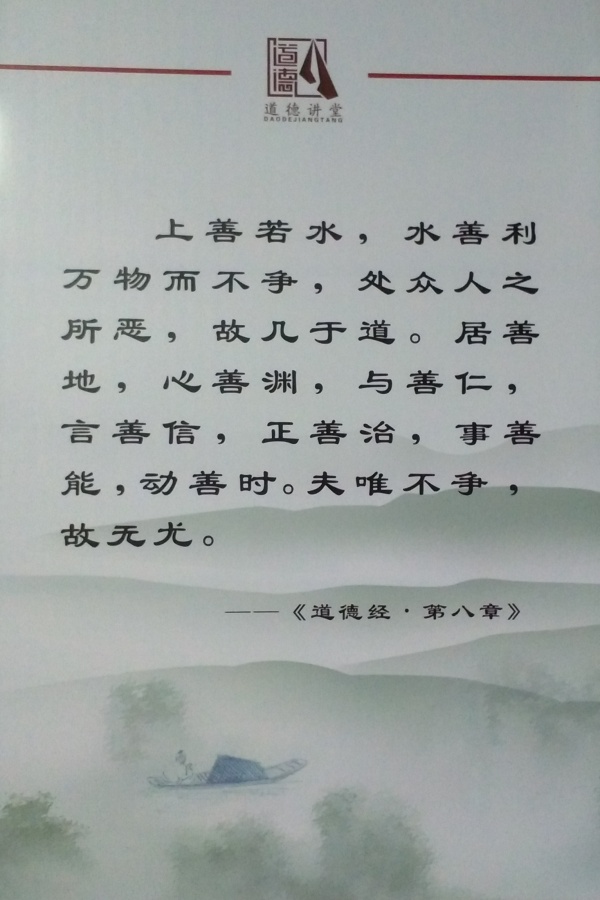 道德
道德讲堂
DAODEJIANGTANG
上善若水，水善利
万物而不争，处众人之
所恶，故几于道。居善
地，心善渊，与善仁，
言善信，正善治，事善
能，动善时。夫唯不争，
故无尤。
——《道德经·第八章》